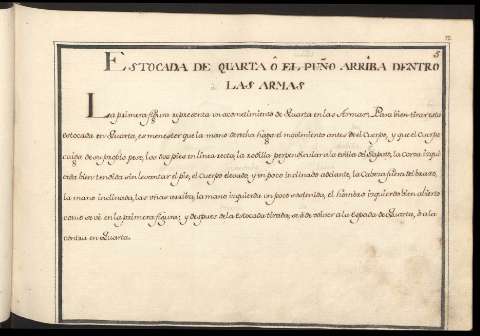 5
ESTOCADA DE QUARTA Ô EL PUÑO ARRIBA DENTRO
LAS ARMAS
La primera figura representa un acometimiento de Quarta en las Armas, Para bien tirar esta
estocada en Quarta, es menester que la mano derecha haga el movimiento antes de el Cuerpo, y que el Cuerpo
caiga de su proprio peso, los dos piés en linea recta, la rodilla perpendicular a la evilla del Zapato, la Corva izqui
erda bien tendida sin levantar el pie, el Cuerpo elevado, y un poco inclinado adelante, la Cabeza fuera del brazo,
la mano inclinada, las uñas arriba, la mano izquierda un poco sostenida, el hombro izquierdo bien abierto
como se vé en la primera figura; y despues de la estocada tirada, se á de volver a la espada de Quarta, ó a la
contra en Quarta.